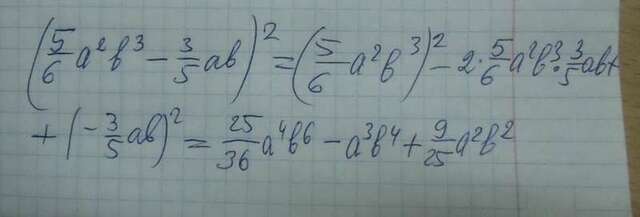 (5/6 a²b³ − 3/5 ab)² = (5/6 a²b³)² − 2·5/6 a²b³·3/5 ab+
+ (−3/5 ab)² = 25/36 a⁴b⁶ − a³b⁴ + 9/25 a²b²